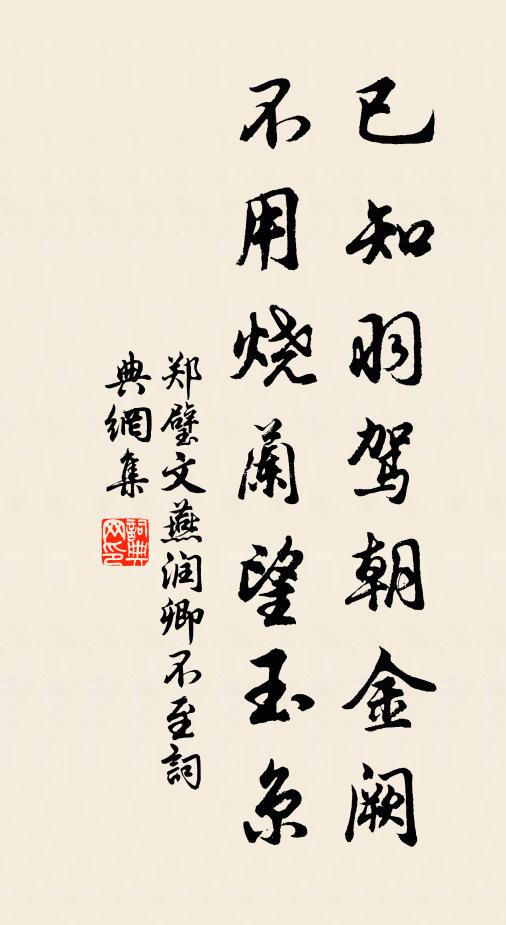 已知羽驾朝金阙
不用烧蘭望玉京
郑璧文燕润卿不至詞
典網集
詞典网印